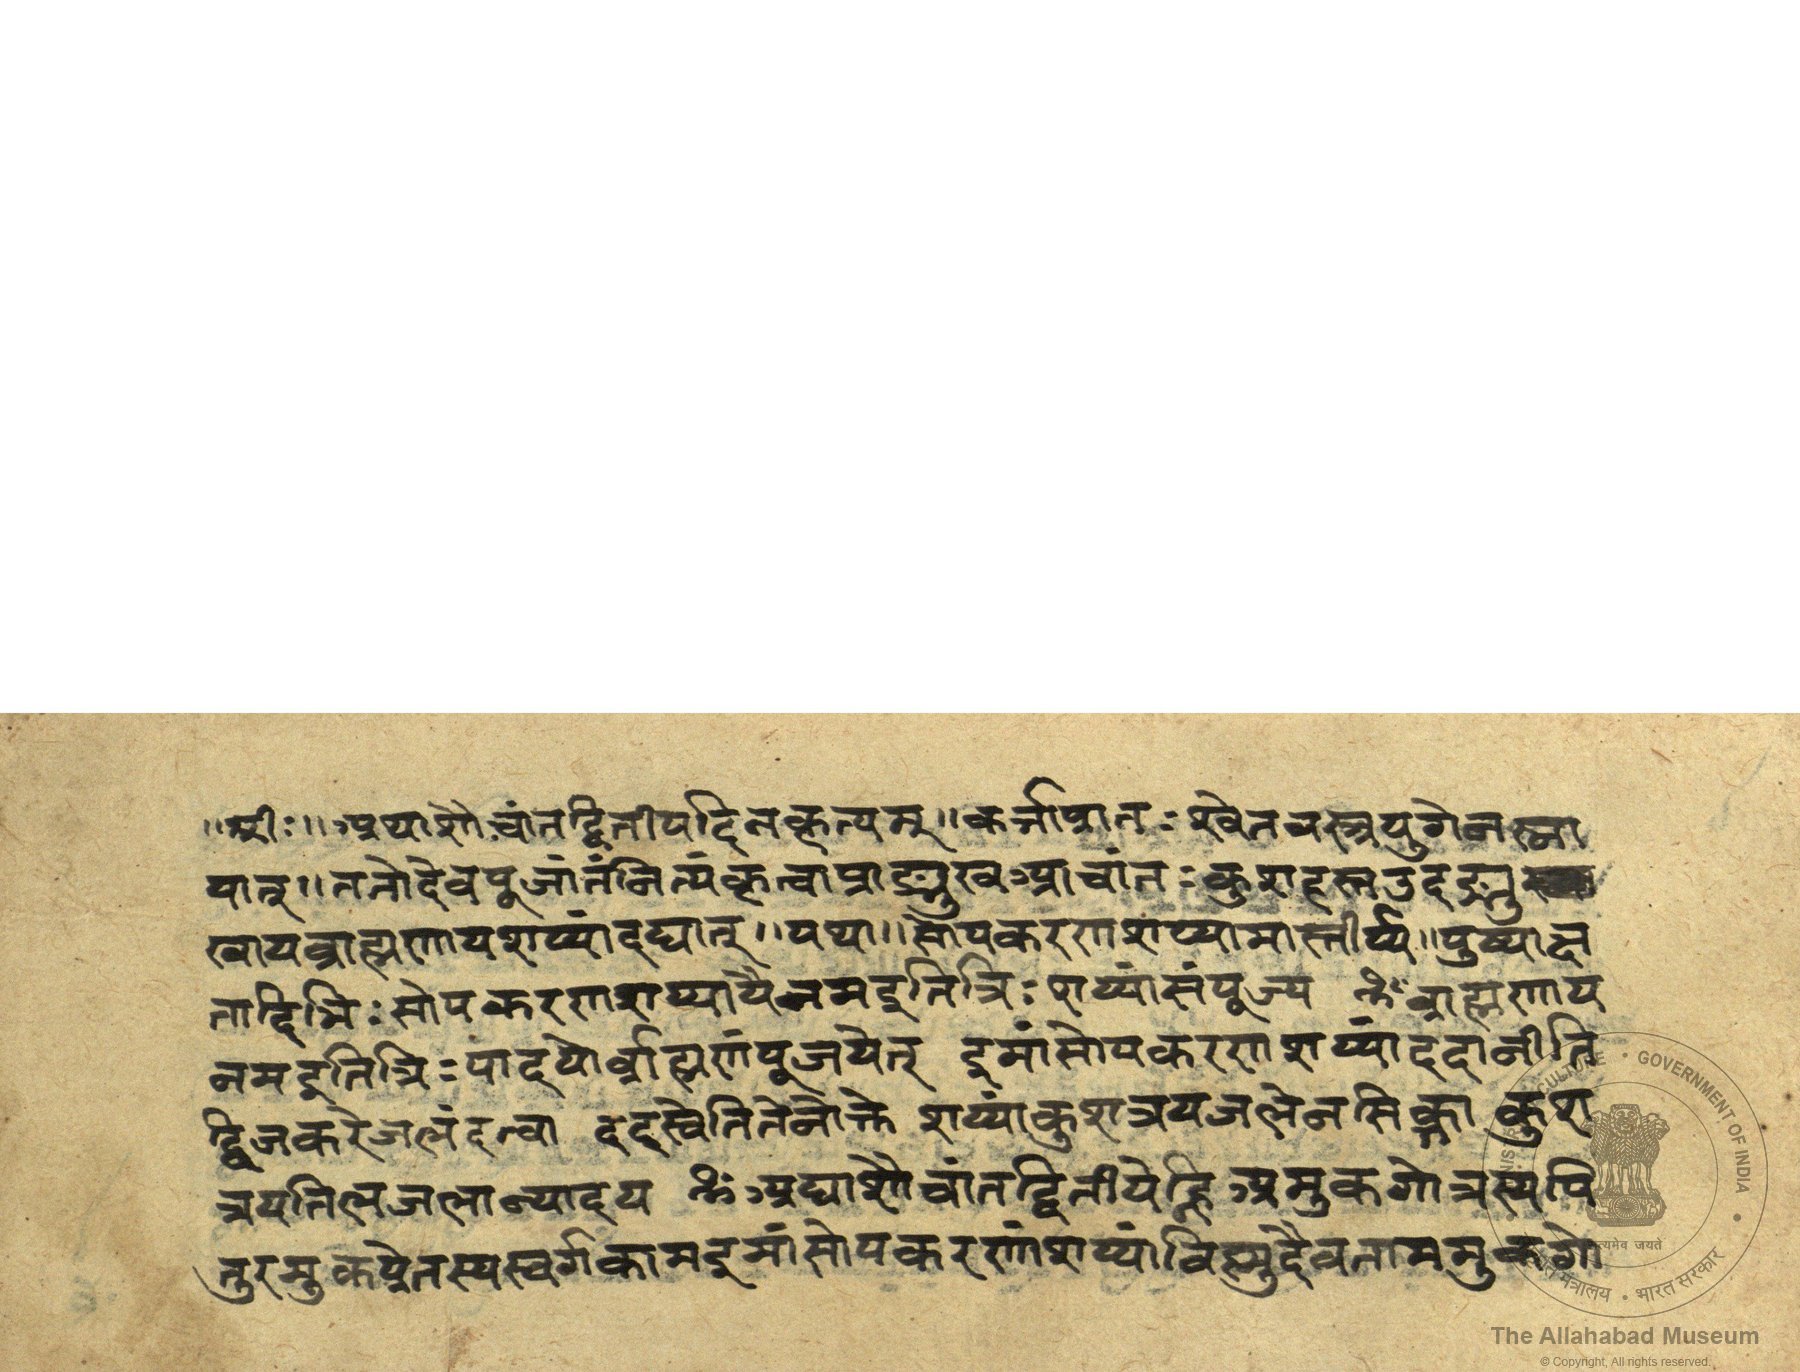 ॥श्रीः॥अथाशौचांतद्वितीयदिनकृत्यम्॥कर्त्ताप्रातःश्वेतवस्त्रयुगेनस्ना
यात्॥ततोदेवपूजांतंनित्यंकृत्वाप्राङ्मुखआचांतःकुशहस्तउदङ्मु
खायब्राह्मणायशय्यांदद्यात्॥यथा॥सोपकरणशय्यामास्तीर्य्य॥पुष्पाक्ष
तादिभिःसोपकरणशय्यायैनमइतित्रिःशय्यांसंपूज्य ॐब्राह्मणाय
नमइतित्रिःपादयोर्ब्राह्मणंपूजयेत् इमांसोपकरणशय्यांददानीति
द्विजकरेजलंदत्वा ददस्वेतितेनोक्ते शय्यांकुशत्रयजलेनसिक्त्वा कुश
त्रयतिलजलान्यादय ॐअद्याशौचांतद्वितीयेह्निअमुकगोत्रस्यपि
तुरमुकप्रेतस्यस्वर्गकामइमांसोपकरणांशय्यांविष्णुदैवताममुकगो
MINISTRY OF CULTURE • GOVERNMENT OF INDIA
सत्यमेव जयते
संस्कृति मंत्रालय • भारत सरकार
The Allahabad Museum
© Copyright, All rights reserved.